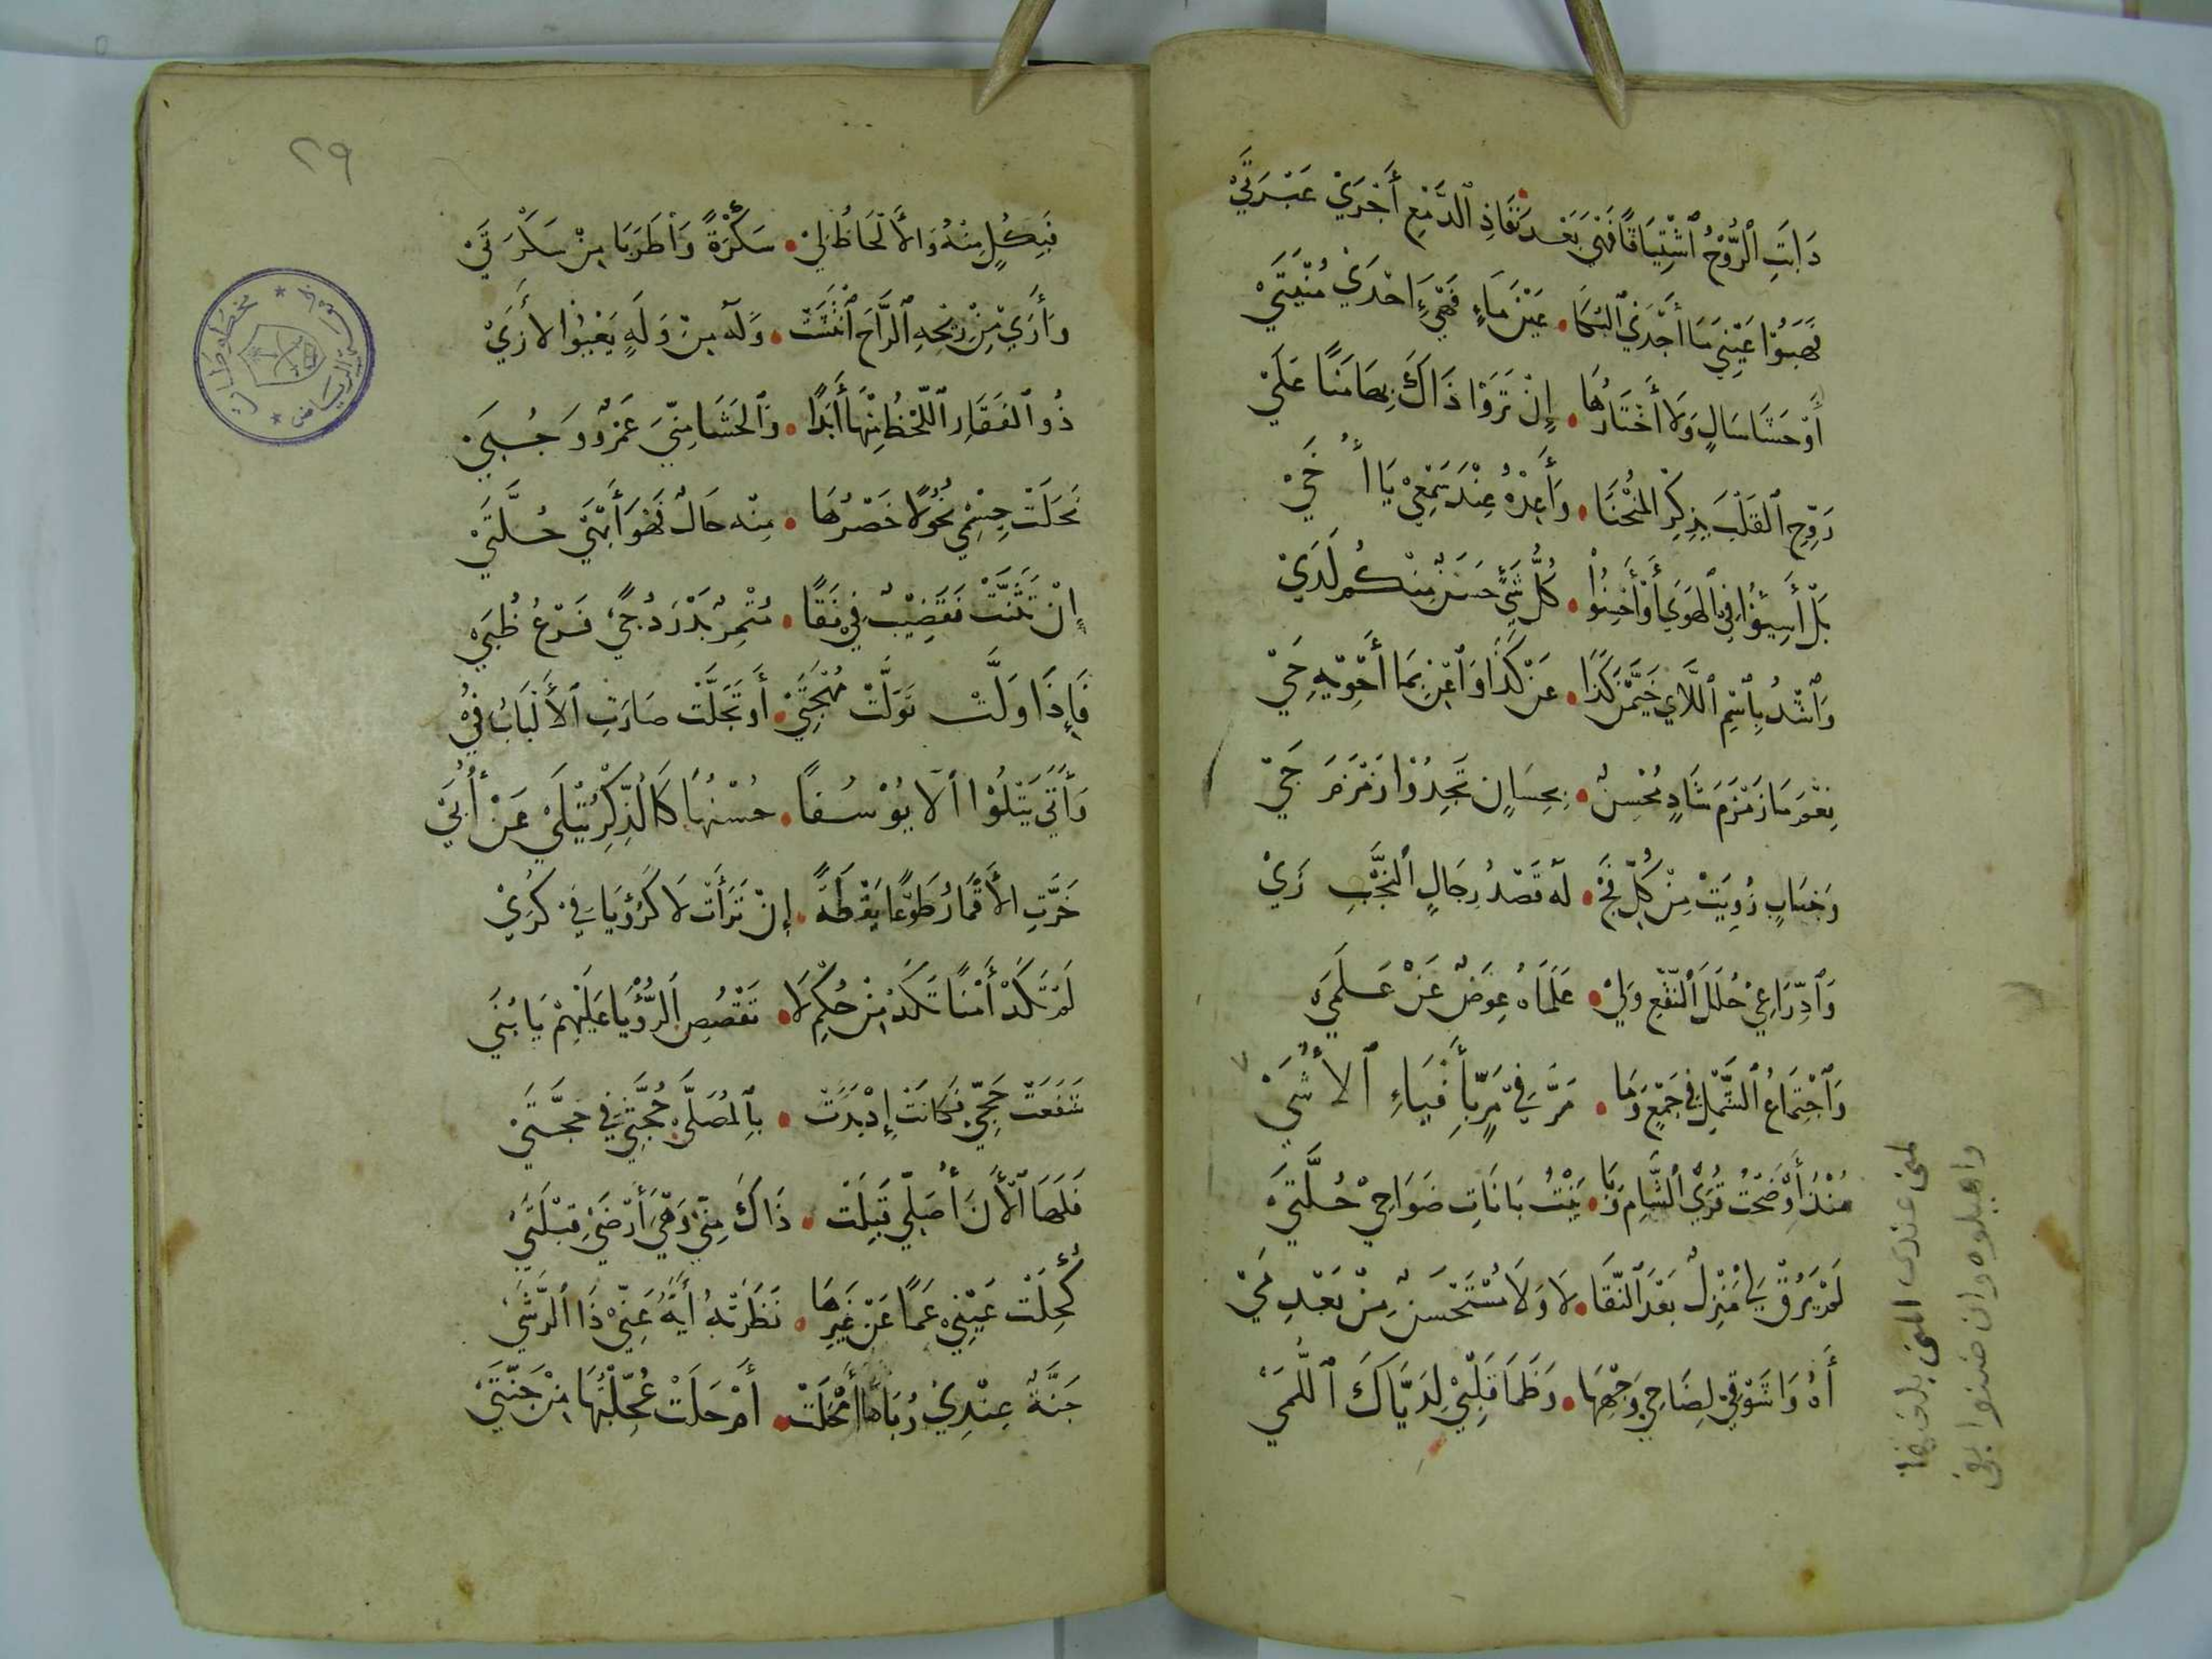 ذَابَتِ ٱلرُّوْحُ ٱشْتِيَاقًا فَهْيَ بَعْدَ نَفَاذِ ٱلدَّمْعِ أَجْرَيْ عَبْرَتَيْ
فَهَبُوْا عَيْنِيَ مَا أَجْدَيْ ٱلبُكَا • عَيْنَ مَاءٍ فَهْيَ إِحْدَيْ مُنْيَتَيْ
أَوْ حَشَا سَالٍ وَلَا أَخْتَارُهَا • إِنْ تَرَوْا ذَاكَ بِهَا مَنًّا عَلَيْ
رَوِّحِ ٱلْقَلْبَ بِذِكْرِ المُنْحَنَا • وَأَعِدْهُ عِنْدَ سَمْعِيْ يَا أُخَيْ
بَلْ أَسِيْؤُا فِي ٱلهَوَي أَوْ أَحْسِنُوْا • كُلُّ شَيْءٍ حَسَنٌ مِنْكُمْ لَدَيْ
وَٱشْدُ بِٱسْمِ ٱللَّايِ خَيَّمْنَ كَذَا • عَنْ كَدَا وَٱعْنِ بِمَا أَحْوِيْهِ حَيْ
نِعْمَ مَا زَمْزَمَ شَادٍ مُحْسِنٌ • بِحِسَانٍ تَخِذُوْا زَمْزَمَ جَيْ
وَجَنَابٍ زُوِيَتْ مِنْ كُلِّ فَجٍّ • لَهُ قَصْدُ رِجَالٍ ٱلنُّجْبِ زَيْ
وَٱدِّرَاعِيْ حُلَلَ ٱلنَّقْعِ وَلِيْ • عَلَمَاهُ عِوَضٌ عَنْ عَلَمَيْهْ
وَٱجْتِمَاعُ ٱلشَّمْلِ فِي جَمْعٍ وَمَا • مَرَّ فِيْ مَرٍّ بِأَفْيَاءِ ٱلأُشَيْ
مُنْذُ أَوْضَحْتُ قُرَيْ ٱلشَّامِ وَبَا • يَنْتُ بَانَاتِ ضَوَاحِيْ حُلَّتَيْهْ
لَمْ يَرُقْ لِيْ مَنْزِلٌ بَعْدَ ٱلنَّقَا • لَا وَلَا مُسْتَحْسَنٌ مِنْ بَعْدِ مَيْ
أَهُ وَاشَوْقِيْ لِضَاحِيْ وَجْهِهَا • وَظَمَا قَلْبِيْ لِذَيَّاكَ ٱللُّمَيْ
لمنى عندى المنى بلغتها
واهيلوه وان ضنوا بفى
٢٩
فَبِكُلٍ مِنْهُ وَالأَلْحَاظُ لِيْ • سَكْرَةٌ وَاطَرَبَا مِنْ سَكْرَتَيْ
وَأَرَيْ مِنْ رِيْحِهِ ٱلرَّاحَ ٱنْتَشَتْ • وَلَهُ مِنْ وَلَهٍ يَعْنُوْا لأُرَيْ
ذُو ٱلفَقَارِ ٱللَّحْظُ مِنْهَا أَبَدًا • وَٱلحَشَا مِنِّيَ عَمْرٌو وَحُيَيْ
نَحَلَتْ جِسْمِيْ نُحُوْلًا خَصْرُهَا • مِنْهُ حَالٍ فَهْوَ أَبْهَيْ حُلَّتَيْ
إِنْ تَثَنَّتْ فَقَضِيْبٌ فِيْ نَقًا • مُثْمِرٌ بَدْرَ دُجًيْ فَرْعُ ظُبَيْ
فَإِذَا وَلَّتْ تَوَلَّتْ مُهْجَتِيْ • أَوْ تَجَلَّتْ صَارَتِ ٱلأَلْبَابُ فَيْ
وَأَبَيْ يَتْلُوْا إلَا يُوْسُفًا • حُسْنُهَا كَالذِّكْرِ يُتْلَيْ عَنْ أُبَيْ
خَرَّتِ الأَقْمَارُ طَوْعًا يَقْظَةً • إِنْ تَرَأَتْ لَا كَرُؤْيَا فِيْ كُرَيْ
لَمْ تَكَدْ أَمْنًا تُكَدْ مِنْ حُكْمِ لَا • تَقْصُصِ ٱلرُّؤْيَا عَلَيْهِمْ يَا بُنَيْ
شَفَعَتْ حَجِّيْ فَكَانَتْ إِذْ بَدَتْ • بِٱلْمُصَلَّيْ حُجَّتِيْ فِيْ حَجَّتَيْ
فَلَهَا ٱلأَنَ أُصَلِّيْ قَبِلَتْ • ذَاكَ مِنِّيْ وَهْيَ أَرْضَيْ قِبْلَتَيْ
كُحِلَتْ عَيْنِيْ عَمًا عَنْ غَيْرِهَا • نَظَرَتْهُ أَيْهُ عَنِّيْ ذَا ٱلرَّشَيْ
جَنَّةٌ عِنْدِيْ رُبَاهَا أَمْحَلَتْ • أَمْ حَلَتْ عُجِّلْتُهَا مِنْ جَنَّتَيْ